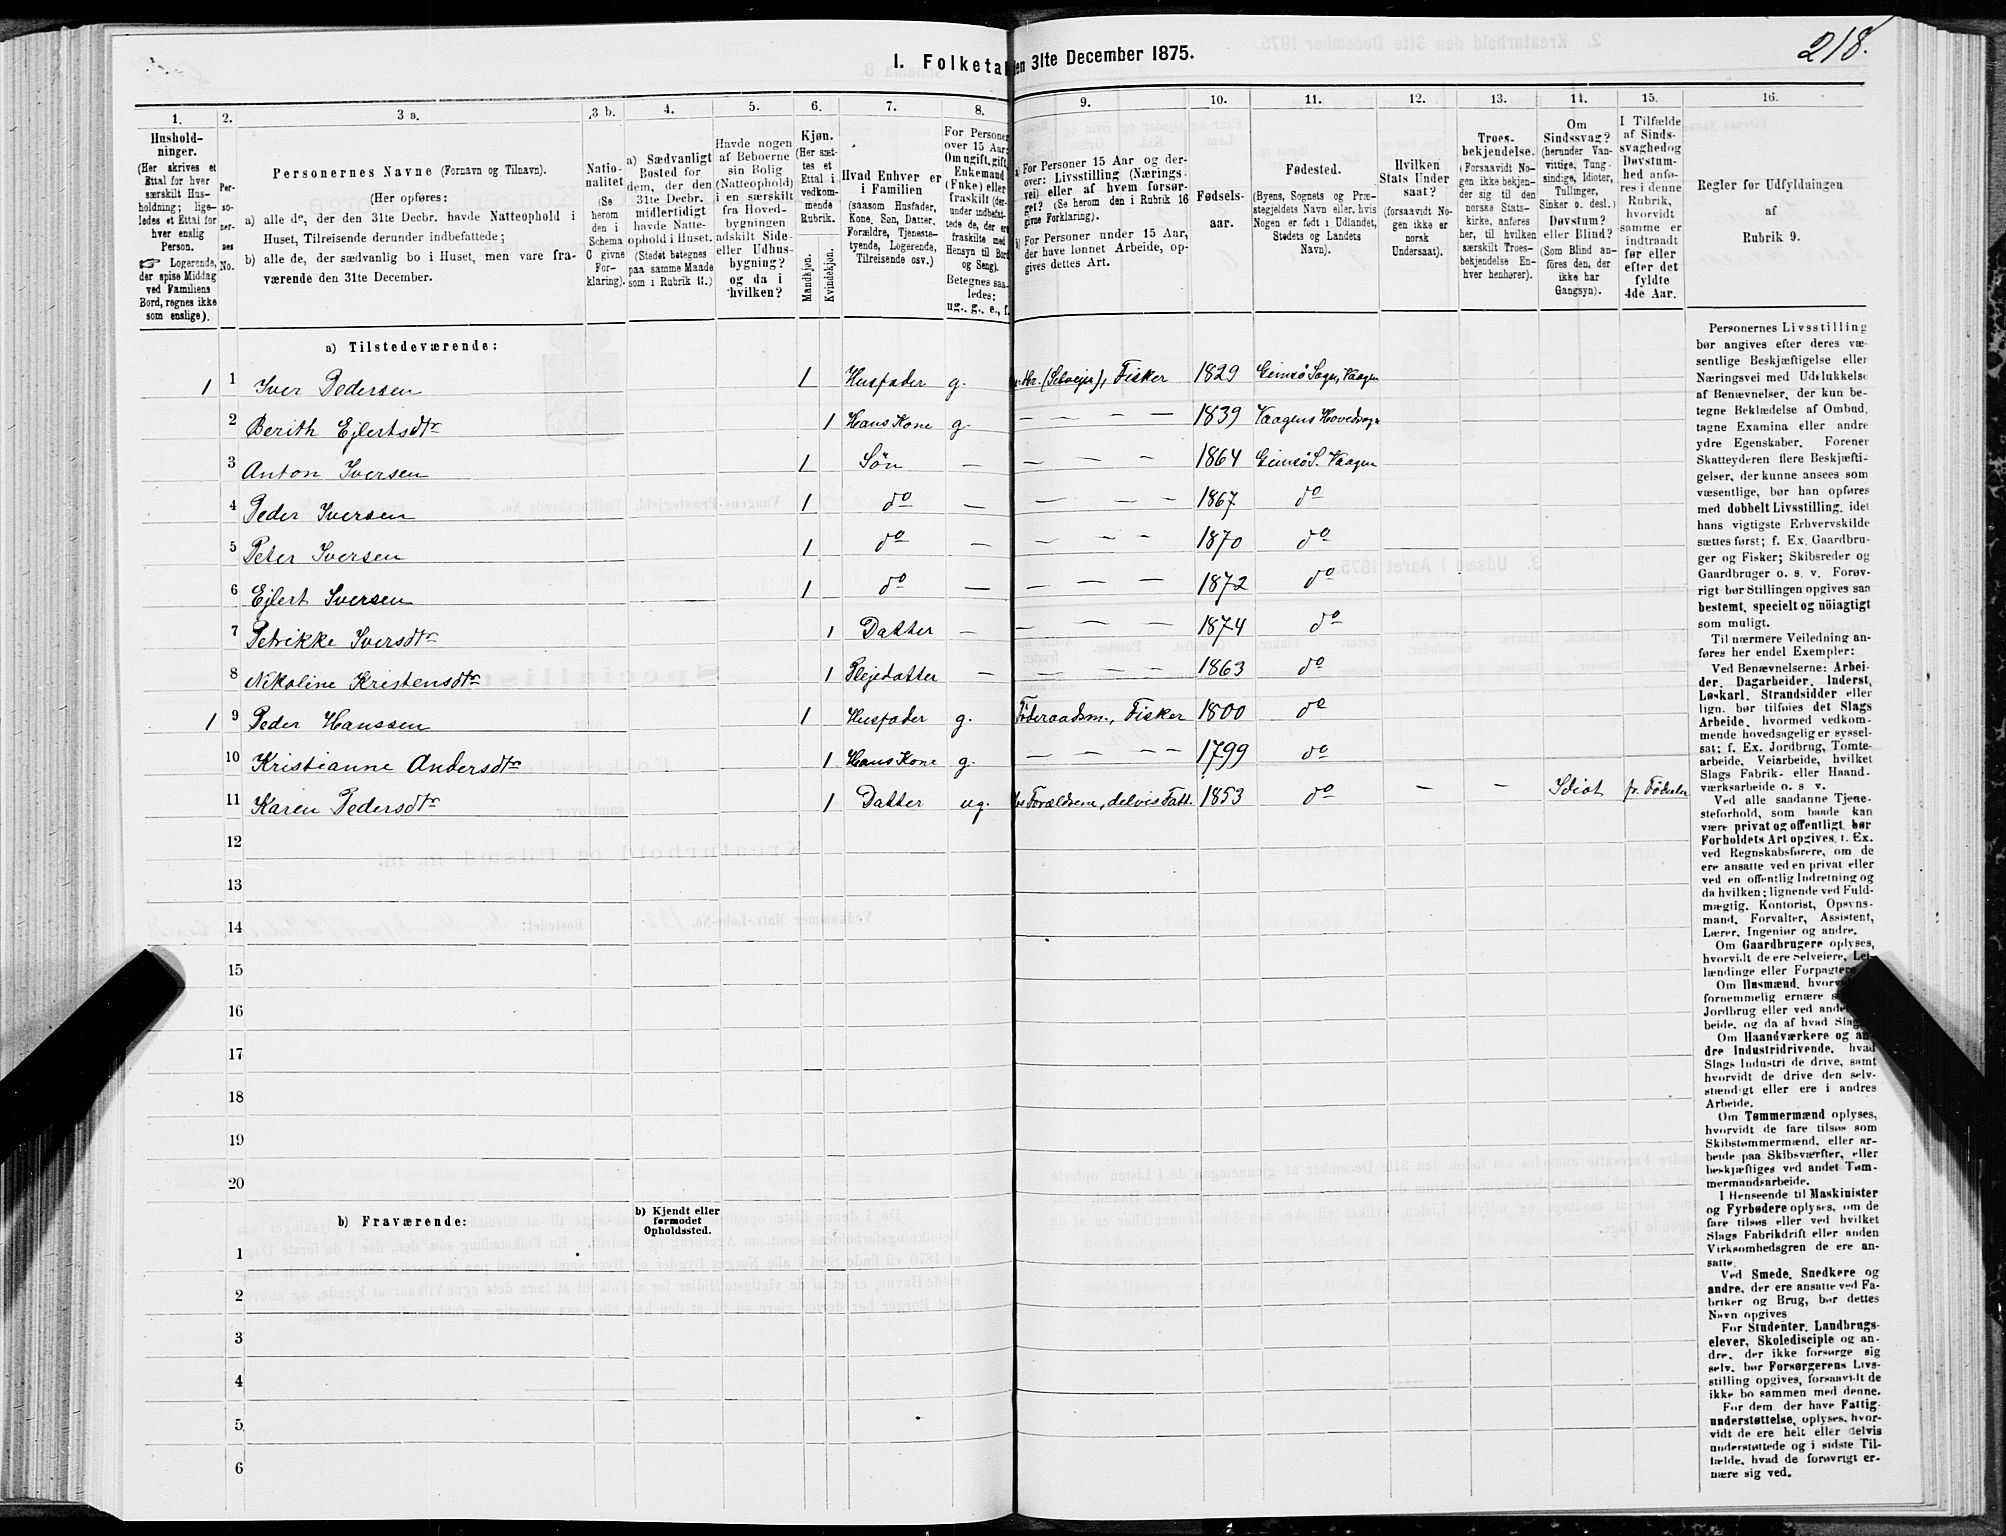 218.
1. Folketa
en 31te December 1875.
1.
2.
3 a.
3 b.
4.
5.
6.
7.
8.
9.
10.
11.
12.
13.
14.
15.
16.
Hushold-
ninger.
(Her skrives et
Ettal for hver
særskilt Hus-
holdning; lige-
ledes et Ettal for
hver enslig
Person.
☞ Logerende,
der spise Middag
ved Familiens
Bord, regnes ikke
som enslige).
Per-
so-
ner-
nes
No.
Personernes Navne (Fornavn og Tilnavn).
(Her opføres:
a) alle de, der den 31te Decbr. havde Natteophold i
Huset, Tilreisende derunder indbefattede;
b) alle de, der sædvanlig bo i Huset, men vare fra-
værende den 31te December.
Natio-
nalitet
(Se
herom
den i
Schema
C givne
For-
klaring).
a) Sædvanligt
Bosted for
dem, der den
31te Decbr.
midlertidigt
havde Natte-
ophold i Huset.
(Stedet betegnes
paa samme Maade
som i Rubrik 11.)
Havde nogen
af Beboerne
sin Bolig
(Natteophold)
i en særskilt
fra Hoved-
bygningen
adskilt Side-
eller Udhus-
bygning?
og da i
hvilken?
Kjøn.
(Her sæt-
tes et
Ettal i
vedkom-
mende
Rubrik.
Mandkjøn.
Kvindekjøn.
Hvad Enhver er
i Familien
(saasom Husfader,
Kone, Søn, Datter,
Forældre, Tjeneste-
tyende, Logerende,
Tilreisende osv.)
For Personer
over 15 Aar:
Om ugift, gift,
Enkemand
(Enke) eller
fraskilt (der-
under indbefat-
tede de, der ere
fraskilte med
Hensyn til Bord
og Seng).
Betegnes saa-
ledes:
ug., g., e., f.
a) For Personer 15 Aar og der-
over: Livsstilling (Nærings-
vei) eller af hvem forsør-
get? (Se herom den i Rubrik 16
givne Forklaring).
b) For Personer under 15 Aar,
der have lønnet Arbeide, op-
gives dettes Art.
Fødsels-
aar.
Fødested.
(Byens, Sognets og Præ-
stegjeldets Navn eller, hvis
Nogen er født i Udlandet,
Stedets og Landets
Navn).
Hvilken
Stats Under
saat?
(forsaavidt No-
gen ikke er
norsk
Undersaat).
Troes-
bekjendelse.
(Forsaavidt No-
gen ikke bekjen-
der sig til den
norske Stats-
kirke, anføres
her, til hvilken
særskilt Troes-
bekjendelse En-
hver henhører).
Om
Sindssvag?
(herunder Van-
vittige, Tung-
sindige, Idioter,
Tullinger,
Sinker o. desl.)
Døvstum?
eller Blind?
(Som Blind an-
føres den, der
ikke har
Gangsyn).
I Tilfælde
af Sinds-
svaghed og
Døvstum-
hed anfø-
res i denne
Rubrik,
hvorvidt
samme er
indtraadt
før eller
efter det
fyldte
4de Aar.
Regler for Udfyldningen
af
Rubrik 9.
a) Tilstedeværende:
1 1 Iver Pedersen 1 Husfader g. (Selveier), Fisker 1829 Gimsö Sogn, Vaagen
2 Berith Ejlertsdtr 1 Hans Kone g. — — — — 1839 Vaagens Hovedsogn
3 Anton Iversen 1 Søn — — — — — 1864 Gimsö S. Vaagen
4 Peder Iversen 1 do — — — — — 1867. do
5 Peter Iversen 1 do — — — — 1870 do
6 Ejlert Iversen 1 do — — — — — 1872 do
7 Petrikke Iversdtr 1 Datter — — — — — 1874 do
8 Nikoline Kristensdtr 1 Plejedatter — — — — — 1863 do
1 9 Peder Hanssen 1 Husfader g. Föderaadsm., Fisker 1800 do
10 Kristianne Andersdtr 1 Hans Kone g. — — — — 1799 do
11 Karen Pedersdtr 1 Datter ug. Forældrene, delvis Fatt. 1853 do — — Idiot fr. Födselen
12
13
14
15
16
17
18
19
20
b) Fraværende:
b) Kjendt eller
formodet
Opholdssted.
1
2
3
4
5
6
Personernes Livsstilling
bør angives efter deres væ-
sentlige Beskjæftigelse eller
Næringsvei med Udelukkelse
af Benævnelser, der kun be-
tegne Beklædelse af Ombud,
tagne Examina eller andre
ydre Egenskaber. Forener
Skatteyderen flere Beskjæfti-
gelser, der kunne ansees som
væsentlige, bør han opføres
med dobbelt Livsstilling, idet
hans vigtigste Erhvervskilde
sættes først; f. Ex. Gaardbru-
ger og Fisker; Skibsreder og
Gaardbruger o. s. v. Forøv-
rigt bør Stillingen opgives saa
bestemt, specielt og nöiagtigt
som muligt.
Til nærmere Veiledning an-
føres her endel Exempler:
Ved Benævnelserne: Arbei-
der, Dagarbeider, Inderst,
Løskarl, Strandsidder eller
lign. bør tilføies det Slags
Arbeide, hvormed vedkom-
mende hovedsagelig er syssel-
sat; f. Ex. Jordbrug, Tomte-
arbeide, Veiarbeide, hvilket
Slags Fabrik- eller Haand-
værksarbeide o. s. v.
Ved alle saadanne Tjene-
steforhold, som baade kan
være privat og offentligt, bør
Forholdets Art opgives, t. Ex.
ved Regnskabsførere, om de
ere ansatte ved en privat eller
ved en offentlig Indretning og
da hvilken; lignende ved Fuld-
mægtig, Kontorist, Opsyns-
mand, Forvalter, Assistent,
Lærer, Ingeniør og andre.
Om Gaardbrugere oplyses,
hvorvidt de ere Selveiere, Lei-
lændinge eller Forpagtere.
Om Husmænd, hvorv
fornemmelig ernære s
Jordbrug eller ved ande
beide, og da af hvad Slag
Om Haandværkere og an-
dre Industridrivende, hvad
Slags Industri de drive, samt
hvorvidt de drive den selv-
stændigt eller ere i andres
Arbeide.
Om Tømmermænd oplyses,
hvorvidt de fare tilsøs som
Skibstømmermænd, eller ar-
beide paa Skibsværfter, eller
beskjæftiges ved andet Tøm-
mermandsarbeide.
I Henseende til Maskinister
og Fyrbødere oplyses, om de
fare tilsøs eller ved hvilket
Slags Fabrikdrift eller anden
Virksomhedsgren de ere an-
satte.
Ved Smede, Snedkere og
andre, der ere ansatte ved Fa-
briker og Brug, bør dettes
Navn opgives
For Studenter, Landbrugs-
elever, Skoledisciple og an-
dre, der ikke forsørge sig
selv, bør Forsørgerens Livs-
stilling opgives, forsaavidt de
ikke bo sammen med denne.
For dem, der have Fattig-
understøttelse, oplyses, hvor-
vidt de ere helt eller delvis
understøttede og i sidste Til-
fælde, hvad de forøvrigt er-
nære sig ved.